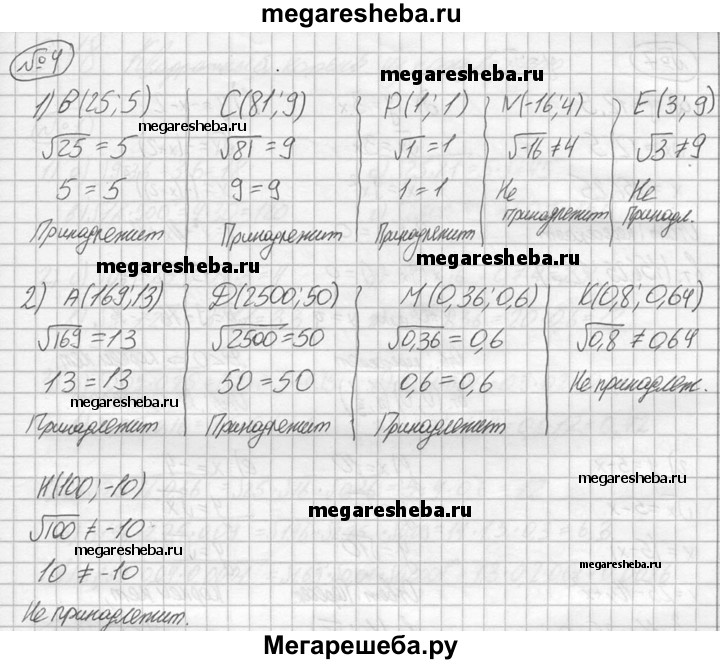 megaresheba.ru
№4
megaresheba.ru
1) B(25; 5) C(81; 9) P(1; 1) N(-16; 4) E(3; 9)
megaresheba.ru
√25 = 5 √81 = 9 √1 = 1 √-16 ≠ 4 √3 ≠ 9
5 = 5 9 = 9 1 = 1 Не принадлежит Не принадл.
Принадлежит Принадлежит Принадлежит
megaresheba.ru megaresheba.ru
2) A(169; 13) Д(2500; 50) M(0,36; 0,6) K(0,8; 0,64)
√169 = 13 √2500 = 50 √0,36 = 0,6 √0,8 ≠ 0,64
13 = 13 50 = 50 0,6 = 0,6 Не принадлеж.
megaresheba.ru
Принадлежит Принадлежит Принадлежит
megaresheba.ru
H(100; -10)
megaresheba.ru
√100 ≠ -10
megaresheba.ru megaresheba.ru
10 ≠ -10
Не принадлежит.
Мегарешеба.ру